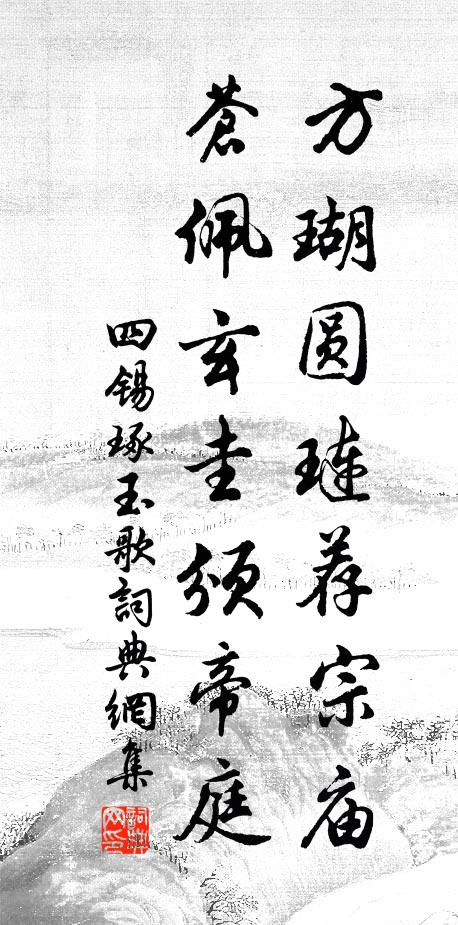 方瑚圆琏荐宗庙
蒼佩玄圭頒帝庭
四錫琢玉歌詞典網集